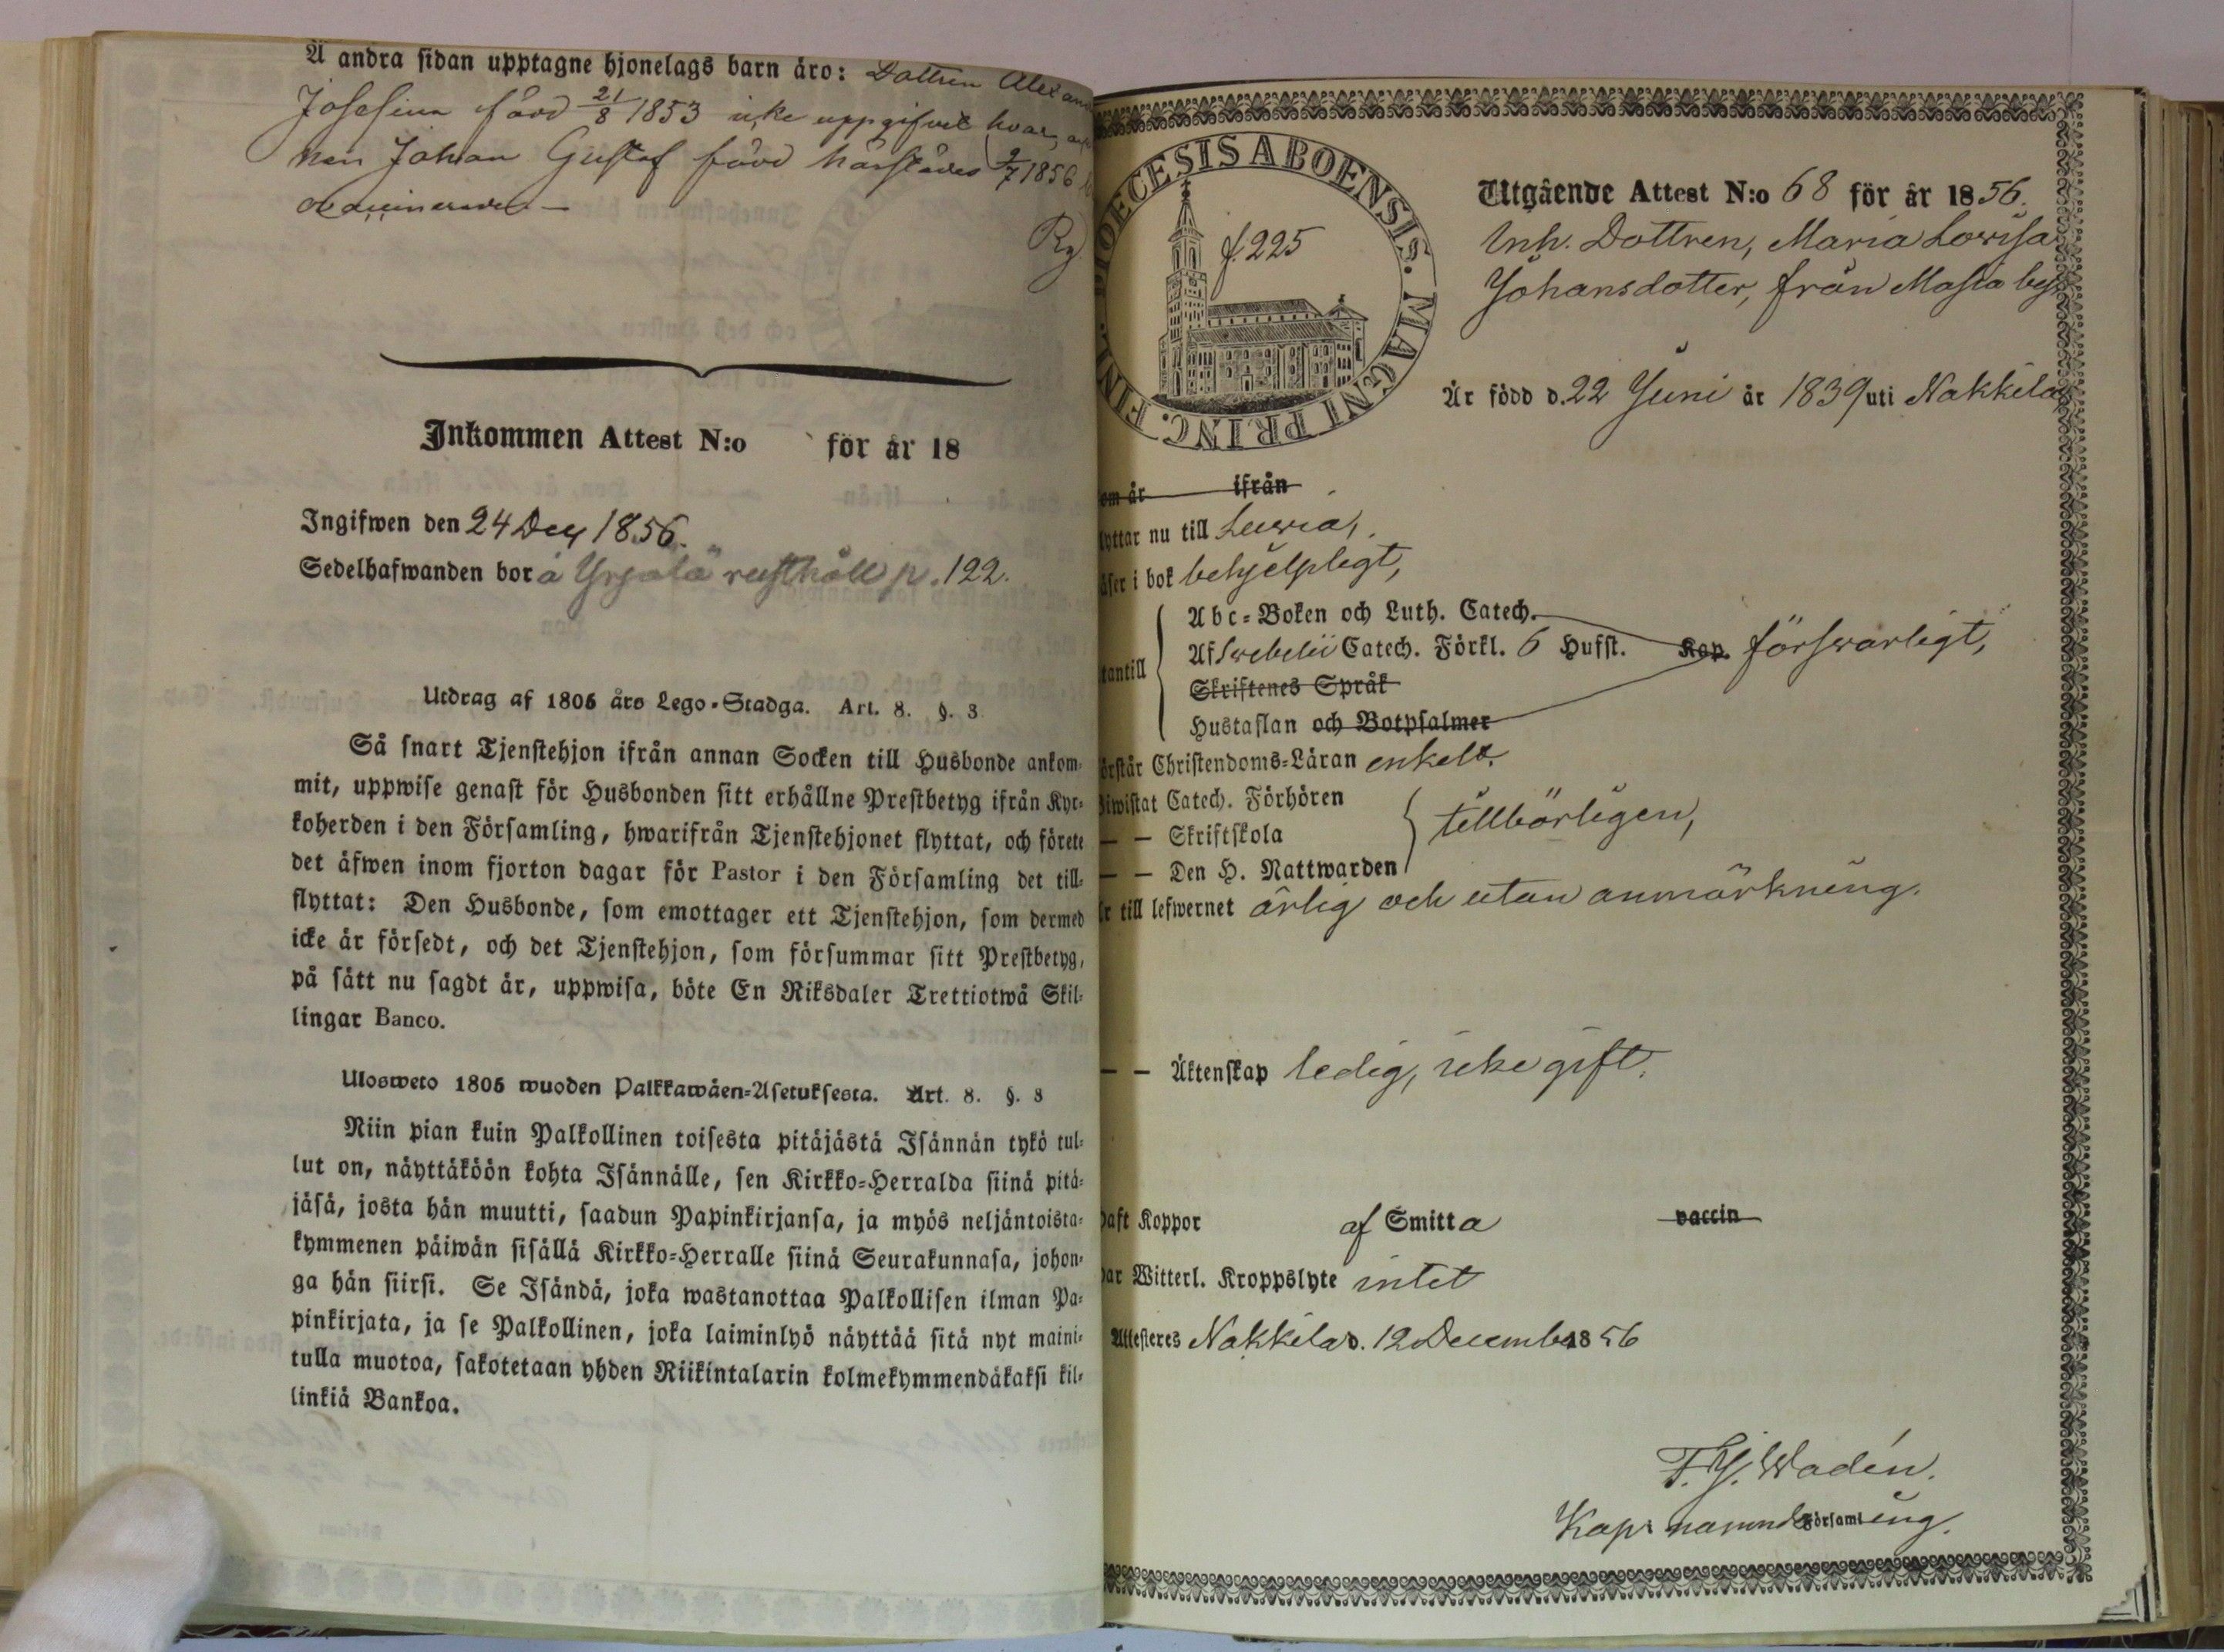 Å andra sidan upptagne hjonelags barn äro: Dottren Alexan
Josefina född 21/8 1853 icke uppgifvet hvar,
Johan Gustaf född härstädes 9/7 1856
Inkommen Attest N:o för år 18
Ingifwen den 24 Dec 1856.
Sedelhafwanden bor å Yrjälä rusthåll p. 122.
Utdrag af 1805 års Lego-Stadga. Art. 8. §. 3
Så snart Tjenstehjon ifrån annan Socken till Husbonde ankom-
mit, uppwise genast för Husbonden sitt erhållne Prestbetyg ifrån Kyr-
koherden i den Församling, hwarifrån Tjenstehjonet flyttat, och förete
det äfwen inom fjorton dagar för Pastor i den Församling det till-
flyttat: Den Husbonde, som emottager ett Tjenstehjon, som dermed
icke är försedt, och det Tjenstehjon, som försummar sitt Prestbetyg,
på sätt nu sagdt är, uppwisa, böte En Riksdaler Trettiotwå Skil-
lingar Banco.
Ulosweto 1805 wuoden Palkkawäen-Asetuksesta. Art. 8. §. 3
Niin pian kuin Palkollinen toisesta pitäjästä Isännän tykö tul-
lut on, näyttäköön kohta Isännälle, sen Kirkko-Herralda siinä pitä-
jäsä, josta hän muutti, saadun Papinkirjansa, ja myös neljäntoista-
kymmenen päiwän sisällä Kirkko-Herralle siinä Seurakunnasa, johon-
ga hän siirsi. Se Isändä, joka wastanottaa Palkollisen ilman Pa-
pinkirjata, ja se Palkollinen, joka laiminlyö näyttää sitä nyt maini-
tulla muotoa, sakotetaan yhden Riikintalarin kolmekymmendäkaksi kil-
linkiä Bankoa.
DIOECESIS ABOENSIS. MAGNI PRINC. FINL.
f. 225
Utgående Attest N:o 68 för år 1856.
Inh. Dottren, Maria Lovisa
Johansdotter, från Masia by,
Är född d. 22 Juni år 1839 uti Nakkila
om är ifrån
lyttar nu till Luvia,
äser i bok behjelpligt,
tantill
Abc-Boken och Luth. Catech.
Af Swebelii Catech. Förkl. 6 Hufst. Kap. försvarligt,
Skriftenes Språk
Hustaflan och Botpsalmer
örstår Christendoms-Läran enkelt.
Biwistat Catech. Förhören
— — Skriftskola tillbörligen,
— — Den H. Nattwarden
Är till lefwernet ärlig och utan anmärkning.
— — Äktenskap ledig, icke gift.
Haft Koppor af Smitta vaccin
har Witterl. Kroppslyte intet
Attesteres Nakkila d. 12 December 1856
F. G. Wadén.
Kap. namnde Församling.